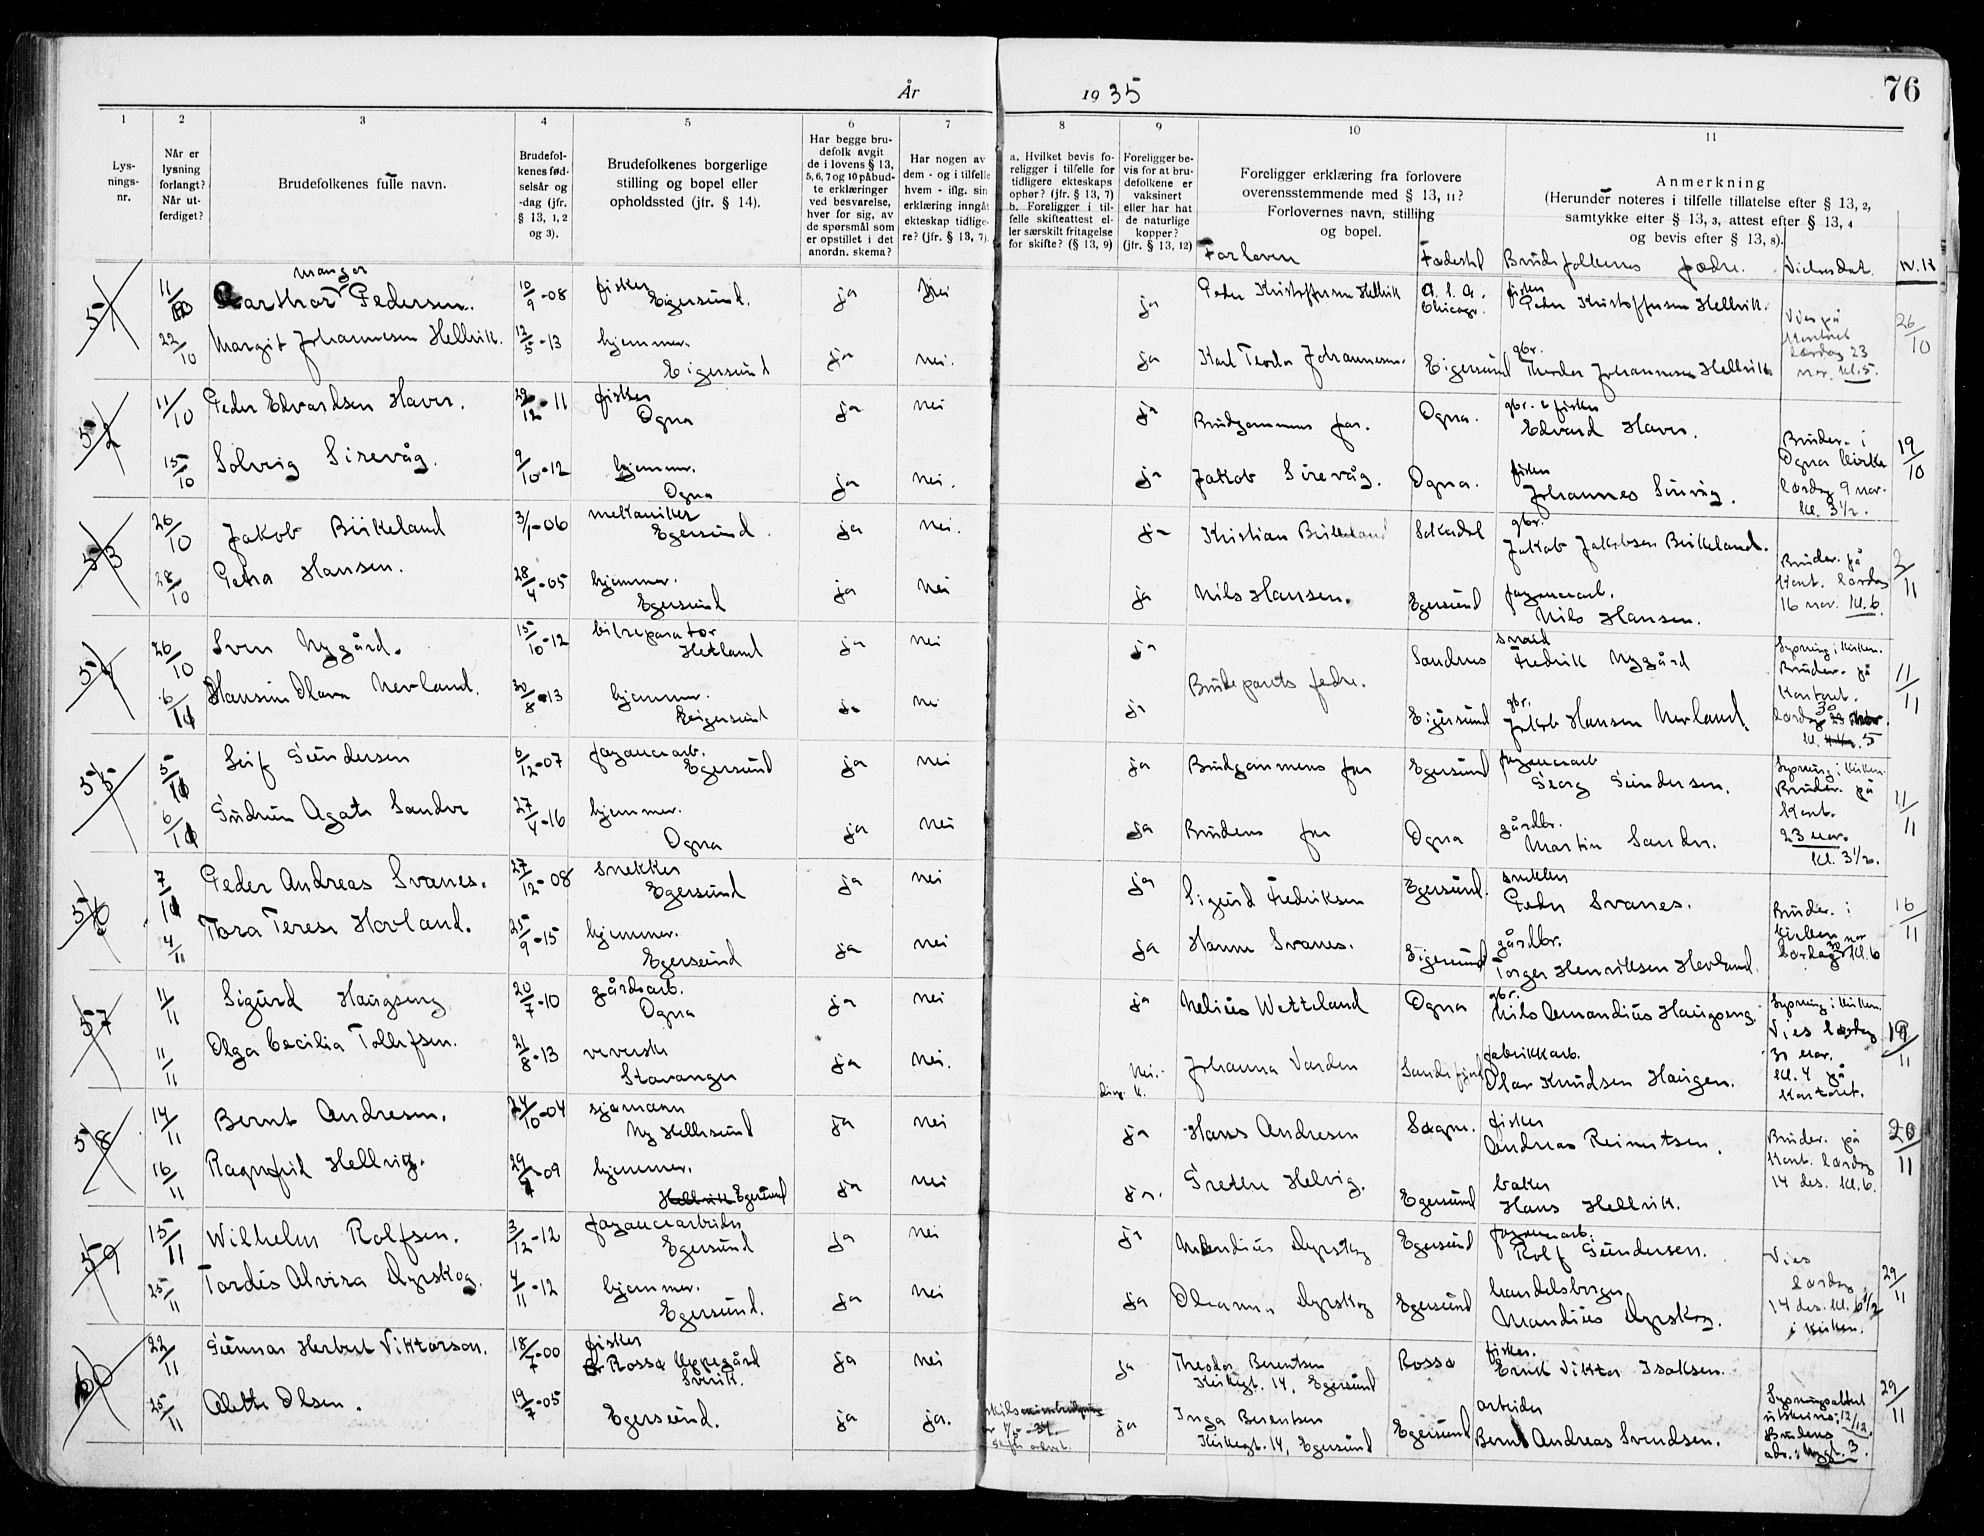 År 1935
76
1 2 3 4 5 6 7 8 9 10 11
Lysnings-nr.
Når er lysning forlangt? Når utferdiget?
Brudefolkenes fulle navn.
Brudefolkenes fødselsår og -dag (jfr. § 13, 1, 2 og 3).
Brudefolkenes borgerlige stilling og bopel eller opholdssted (jfr. § 14).
Har begge brudefolk avgit de i lovens § 13, 5, 6, 7 og 10 påbudte erklæringer ved besvarelse, hver for sig, av de spørsmål som er opstillet i det anordn. skema?
Har nogen av dem - og i tilfelle hvem - iflg. sin erklæring inngåt ekteskap tidligere? (jfr. § 13, 7)
a. Hvilket bevis foreligger i tilfelle for tidligere ekteskaps ophør? (jfr. § 13, 7) b. Foreligger i tilfelle skifteattest eller særskilt fritagelse for skifte? (§ 13, 9)
Foreligger bevis for at brudefolkene er vaksinert eller har hat de naturlige kopper? (jfr. § 13, 12)
Foreligger erklæring fra forlovere overensstemmende med § 13, 11? Forlovernes navn, stilling og bopel.
Anmerkning (Herunder noteres i tilfelle tillatelse efter § 13, 2, samtykke efter § 13, 3, attest efter § 13, 4 og bevis efter § 13, 8).
Forlovere Fødested Brudefolkenes fedre. Vielsesdat. N.K
51 11/10 Manger Pedersen. 10/9-08 fisker Egersund. ja nei ja Peder Kristoffersen Hellvik Chicago. fisker Peder Kristoffersen Hellvik. Vies på kontoret lørdag 23 nov. kl. 5. 26/10
22/10 Margit Johannesen Hellvik. 12/5-13 hjemmev. Eigersund ja nei. ja Karl Teodor Johannesen. Eigersund gbr. Theodor Johannesen Hellvik
52 11/10 Peder Edvardsen Haver. 29/12-11 fisker Ogna ja nei ja Brudgommens far. Ogna. gbr. & fisker Edvard Haver. Brudev. i Ogna kirke lørdag 9 nov. kl. 3 1/2. 19/10
15/10 Solveig Sirevåg. 9/10-12 hjemmev. Ogna ja nei. ja Jakob Sirevåg. Ogna. fisker Johannes Sirevåg.
53 26/10 Jakob Birkeland 3/1-06 mekaniker Egersund. ja nei. ja Kristian Birkeland Sokndal gbr. Jakob Jakobsen Birkeland. Brudev. på kont. lørdag 16 nov. kl. 6. 2/11
28/10 Petra Hansen. 28/4-05 hjemmev. Egersund ja nei ja Nils Hansen. Egersund fayancearb. Nils Hansen.
54 26/10 Sven Nygård. 15/10-12 bilreparatør Hetland ja nei ja Brudeparets fedre. Sandnes smed Fredrik Nygård Lysning i kirken. Brudev. på kontoret. lørdag 30 kl. 5 11/11
6/11 Hansine Olava Nevland. 30/8-13 hjemmev. Eigersund ja nei ja Eigersund gbr. Jakob Hansen Nevland
55 5/11 Leif Gundersen 6/12-07 fayancearb. Egersund ja nei ja Brudgommens far Egersund fayancearb Georg Gundersen. Lysning i kirken. Brudev. på kont. 23 nov. kl. 3 1/2. 11/11
6/11 Gudrun Agate Sandve 27/4-16 hjemmev. Ogna ja nei ja Brudens far Ogna gårdbr. Martin Sandve.
56 7/11 Peder Andreas Svanes. 27/12-08 snekker Egersund ja nei ja Sigurd Fredriksen Egersund. snekker Peder Svanes. Brudev. i kirken lørdag 30 nov kl. 6 16/11
4/11 Tora Terese Hovland. 25/9-15 hjemmev. Egersund ja nei ja Hanne Svanes. Eigersund gårdbr. Torger Henriksen Hovland.
57 11/11 Sigurd Haugseng 20/7-10 gårdsarb. Ogna ja nei ja Nelius Wetteland Ogna gbr. Nils Amandius Haugseng. Lysning i kirken. Vies lørdag 30 nov. kl. 4 på kontoret. 19/11
11/11 Olga Cecilia Tollefsen. 21/8-13 veverske Stavanger ja nei. Nei. Johanna Varden Sandefjord fabrikkarb. Olav Knudsen Haugen.
58 14/11 Bernt Andresen. 24/10-04 sjømann Ny Hellesund ja nei ja Hans Andresen Søgne. fisker Andreas Reinertsen. Brudev. på kont. lørdag 14 des. kl. 6. 20/11
16/11 Ragnfrid Hellvig. 29/7-09 hjemmev. Hellvik Egersund ja nei ja. Grethe Helvig. Egersund baker Hans Hellvik.
59 15/11 Wilhelm Rolfsen. 3/12-12 fayancearbeider Egersund ja nei ja Mandius Dyrskog Egersund fayancearb. Rolf Gundersen. Vies lørdag 14 des. kl. 6 1/2 i kirken. 29/11
25/11 Tordis Alvira Dyrskog. 4/11-12 hjemmev. Egersund. ja nei ja Oleanna Dyrskog Egersund handelsborger Mandius Dyrskog.
60 22/11 Gunnar Herbert Viktorson. 18/7-00 fisker Rossø Uppegård Sverik. ja nei ja Theodor Berentsen Kirkegt. 14, Egersund Rossø fisker. Ernst Viktor Isaksen. Lysningsattest utskrevet 12/12. Brudens adr.: Nygt. 3. 29/11
25/11 Alette Olsen. 19/7-05 Egersund. ja ja. ja Inga Berentsen Kirkegt. 14, Egersund Egersund arbeider Bernt Andreas Svendsen.